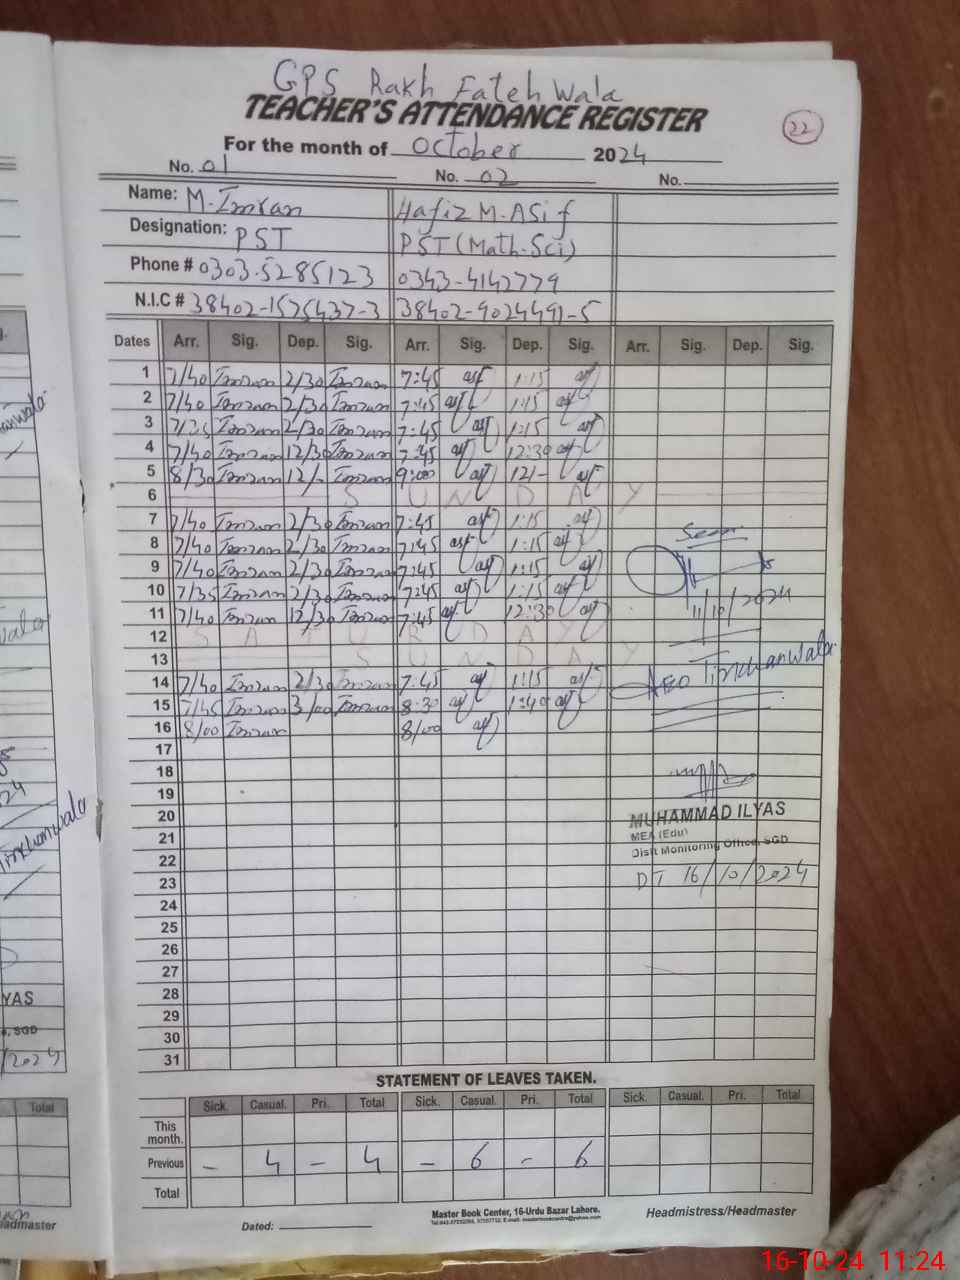 GPS Rakh Fateh Wala
TEACHER'S ATTENDANCE REGISTER
22
For the month of October 2024
No. 01 No. 02 No.
Name: M. Imran Hafiz M. ASif
Designation: PST PST (Math-Sci)
Phone # 0303-5285123 0343-4142779
N.I.C # 38402-1575437-3 38402-9024491-5
Dates Arr. Sig. Dep. Sig. Arr. Sig. Dep. Sig. Arr. Sig. Dep. Sig.
1 7/40 Imran 2/30 Imran 7:45 asf 1:15 asf
2 7/40 Imran 2/30 Imran 7:45 asf 1:15 asf
3 7/35 Imran 2/30 Imran 7:45 asf 1:15 asf
4 7/40 Imran 12/30 Imran 7:45 asf 12:30 asf
5 8/30 Imran 12/- Imran 9:00 asf 12/- asf
6 SUNDAY
7 7/40 Imran 2/30 Imran 7:45 asf 1:15 asf
Seen
8 7/40 Imran 2/30 Imran 7:45 asf 1:15 asf
9 7/40 Imran 2/30 Imran 7:45 asf 1:15 asf
10 7/35 Imran 2/30 Imran 7:45 asf 1:15 asf
11 7/40 Imran 12/30 Imran 7:45 asf 12:30 asf
11/10/2024
12 SATURDAY
13 SUNDAY
AEO Tirkhanwala
14 7/40 Imran 2/30 Imran 7:45 asf 1:15 asf
15 7/45 Imran 3/00 Imran 8:30 asf 1:40 asf
16 8/00 Imran 8/00 asf
17
18
19
20
MUHAMMAD ILYAS
MEA (Edu)
21
Distt Monitoring Office, SGD
22
23
DT 16/10/2024
24
25
26
27
28
29
30
31
STATEMENT OF LEAVES TAKEN.
Sick. Casual. Pri. Total Sick. Casual. Pri. Total Sick. Casual. Pri. Total
This month.
Previous - 4 - 4 - 6 - 6
Total
Dated:
Master Book Center, 16-Urdu Bazar Lahore.
Headmistress/Headmaster
16-10-24 11:24
g.
24
Tirkhanwala
YAS
SGD
/2024
Total
eadmaster